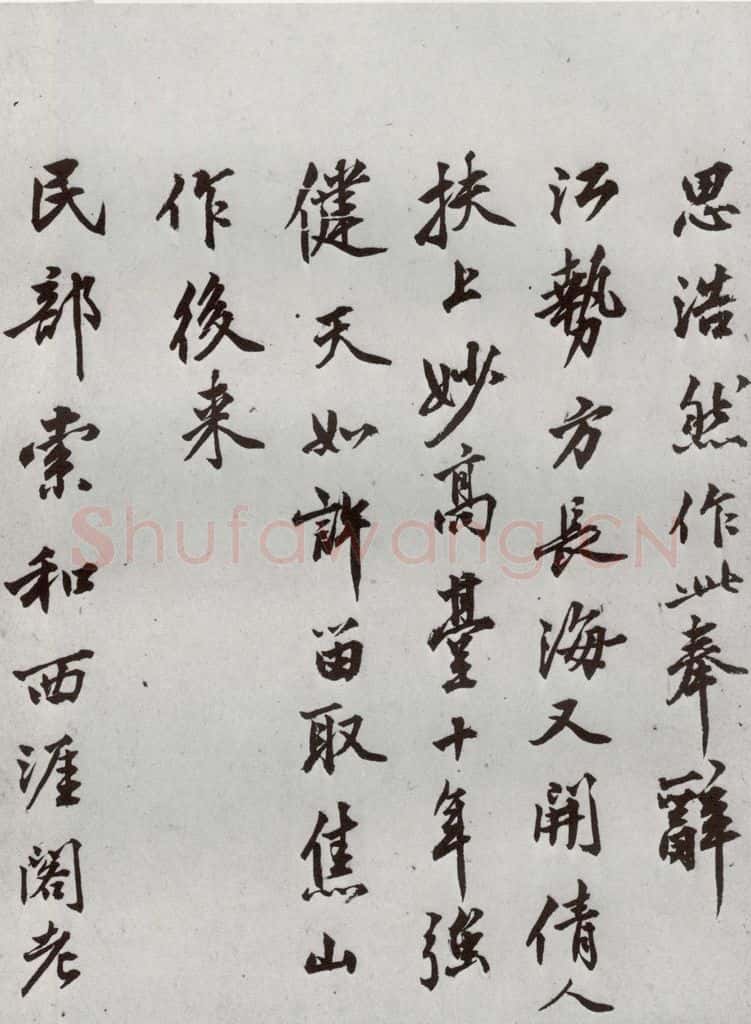 思浩然作此奉辭
江勢方長海又開倩人
扶上妙高臺十年強
健天如許留取焦山
作後来
民部索和西涯閣老
Shufawang.CN